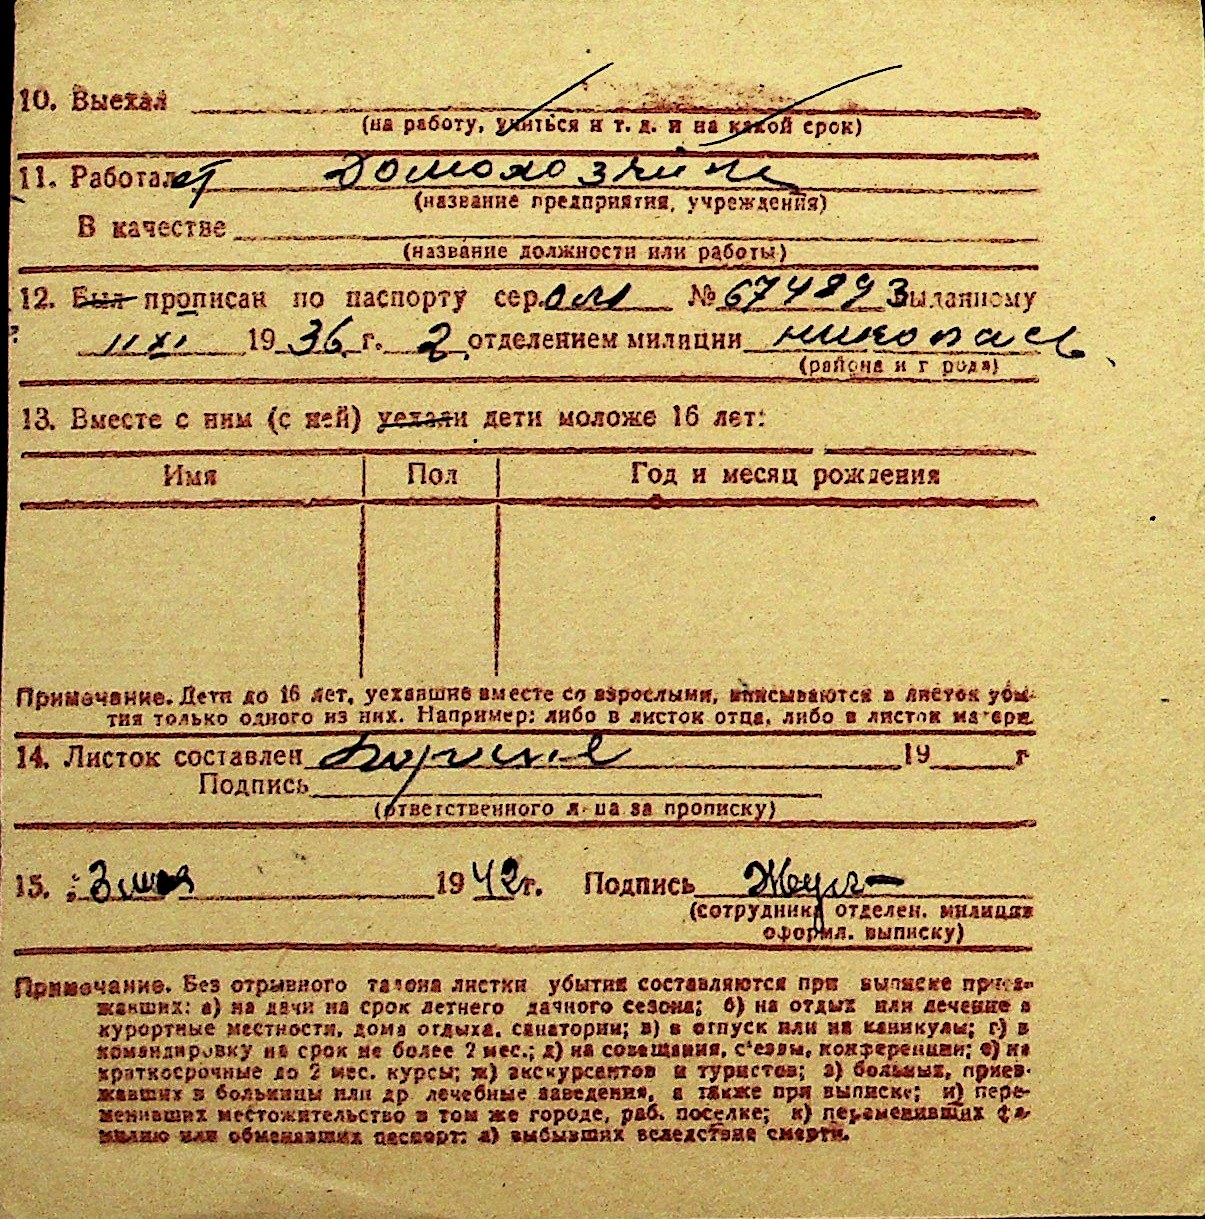 10. Выехал
(на работу, учиться и т. д. и на какой срок)
11. Работает Домохозяйка
(название предприятия, учреждения)
В качестве
(название должности или работы)
12. Был прописан по паспорту сер. № 674893 Выданному
11 XI 1936 г. 2 отделением милиции
(района и города)
13. Вместе с ним (с ней) уехали дети моложе 16 лет:
Имя Пол Год и месяц рождения
Примечание. Дети до 16 лет, уехавшие вместе со взрослыми, вписываются в листок убы-
тия только одного из них. Например: либо в листок отца, либо в листок матери.
14. Листок составлен 19 г
Подпись
(ответственного лица за прописку)
15. 3 мая 1942 г. Подпись
(сотрудника отделен. милиции
оформл. выписку)
Примечание. Без отрывного талона листки убытия составляются при выписке приез-
жавших: а) на дачи на срок летнего дачного сезона; б) на отдых или лечение в
курортные местности, дома отдыха, санатории; в) в отпуск или на каникулы; г) в
командировку на срок не более 2 мес.; д) на совещания, с'езды, конференции; е) на
краткосрочные до 2 мес. курсы; ж) экскурсантов и туристов; з) больных, приез-
жавших в больницы или др лечебные заведения, а также при выписке; и) пере-
менивших местожительство в том же городе, раб. поселке; к) переменивших фа-
милию или обменявших паспорт; л) выбывших вследствие смерти.